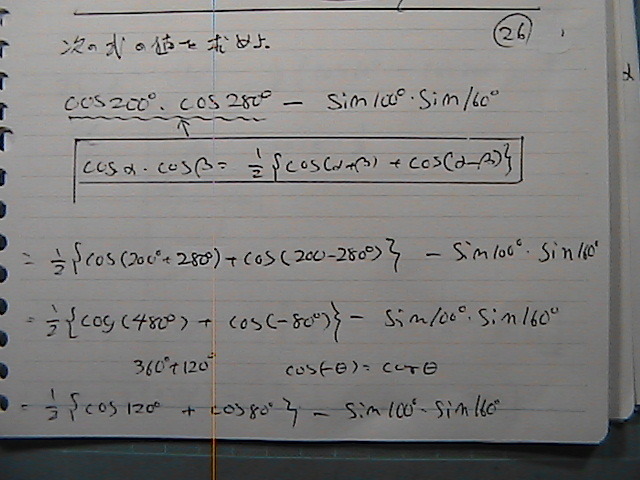 次の式の値を求めよ。 (26)
cos200°・cos280° − sin100°・sin160°
↑
cosα・cosβ = 1/2{cos(α+β) + cos(α−β)}
= 1/2{cos(200°+280°) + cos(200−280°)} − sin100°・sin160°
= 1/2{cos(480°) + cos(−80°)} − sin100°・sin160°
360°+120° cos(−θ) = cosθ
= 1/2{cos120° + cos80°} − sin100°・sin160°